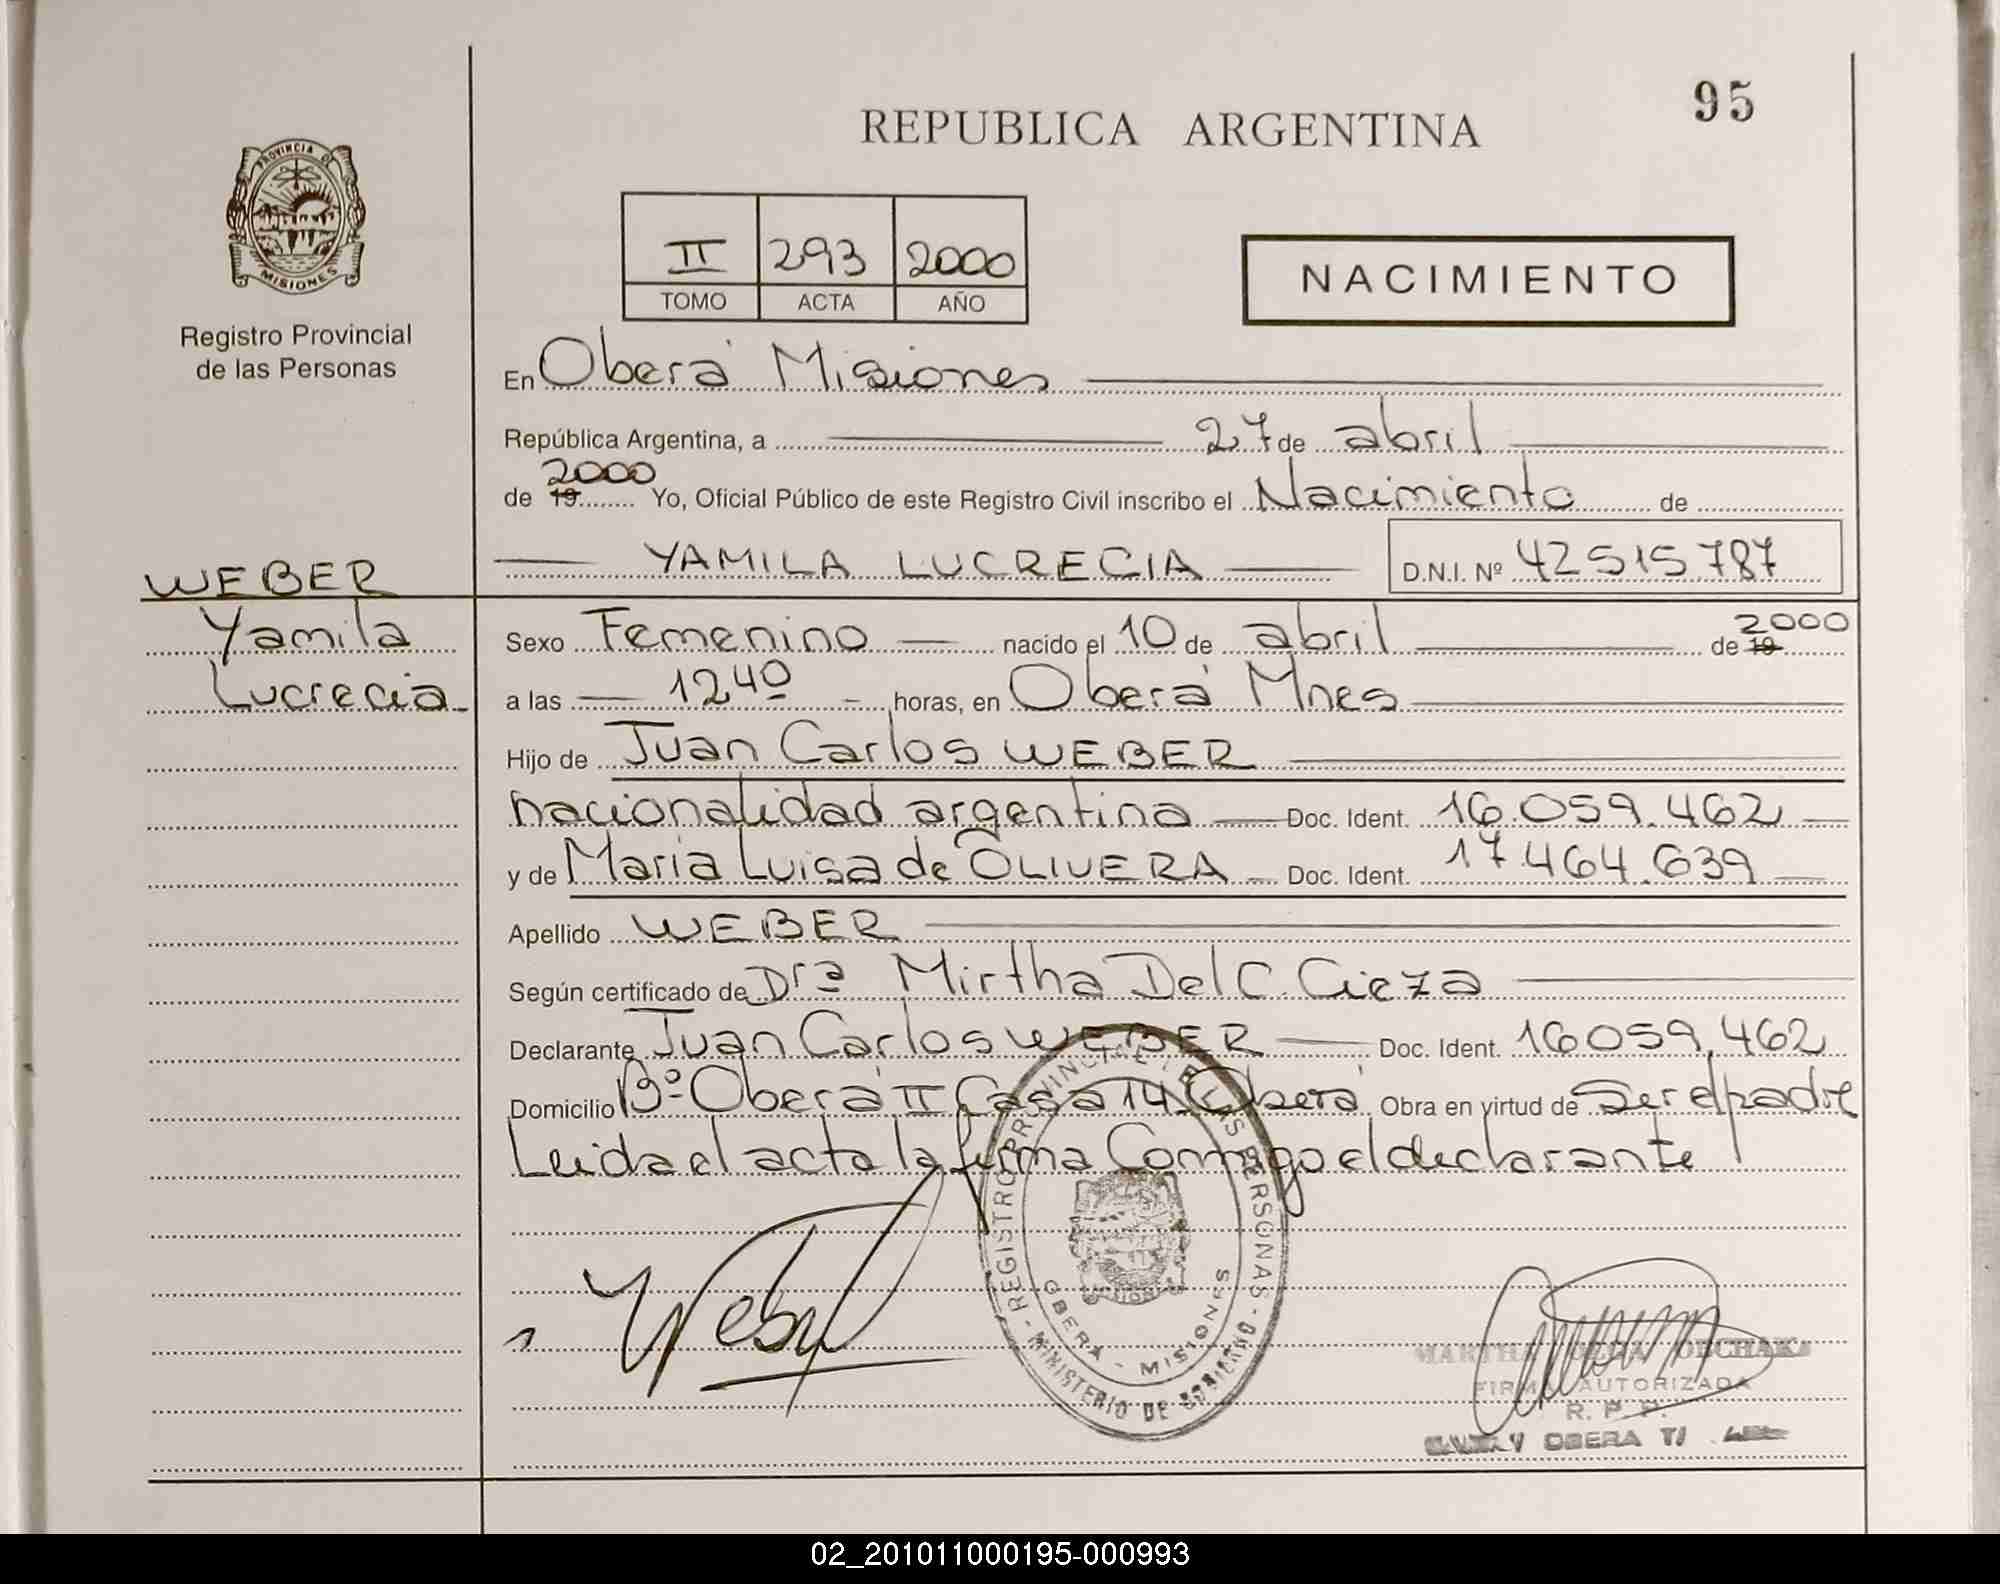 95
REPUBLICA ARGENTINA
PROVINCIA DE
MISIONES
Registro Provincial
de las Personas
II 293 2000
TOMO ACTA AÑO
NACIMIENTO
En Oberá Misiones
República Argentina, a 27 de abril
de 19 2000 Yo, Oficial Público de este Registro Civil inscribo el Nacimiento de
YAMILA LUCRECIA D.N.I. Nº 42515787
WEBER
Yamila
Lucrecia
Sexo Femenino nacido el 10 de abril de 19 2000
a las 12 40 horas, en Oberá Mnes
Hijo de Juan Carlos WEBER
nacionalidad argentina Doc. Ident. 16.059.462
y de Maria Luisa de OLIVERA Doc. Ident. 17.464.639
Apellido WEBER
Según certificado de Drª Mirtha Del C. Cieza
Declarante Juan Carlos WEBER Doc. Ident. 16059.462
Domicilio Bº Oberá II Casa 14 Oberá Obra en virtud de Ser el padre
Leida el acta la firma Conmigo el declarante
REGISTRO PROVINCIAL DE LAS PERSONAS - MINISTERIO DE GOBIERNO -
OBERA - MISIONES
Weber
MARTHA
FIRMA AUTORIZADA
R. P. P.
OBERA
02_201011000195-000993